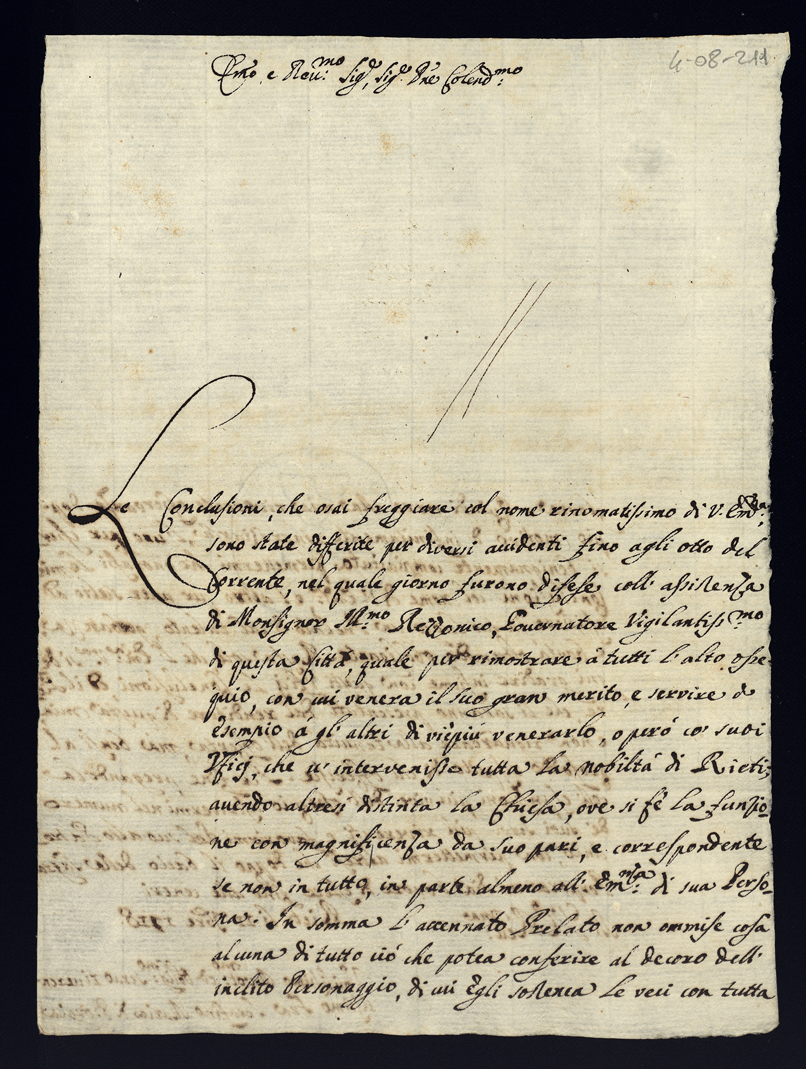 4-08-211
Emo, e Reu.mo Sig.r, Sig.r Pne Colend.mo
Le Conclusioni, che osai freggiare col nome rinomatissimo di V. Em.za,
sono state differite per diversi accidenti fino agli otto del
Corrente, nel quale giorno furono difese coll' assistenza
di Monsignor Ill.mo Rezzonico, Gouernatore Vigilantiss.mo
di questa Città, quale per rimostrare à tutti l'alto osse
quio, con cui venera il suo gran merito, e servire d'
esempio à gl' altri di viepiù venerarlo, operò co' suoi
Vficj, che u' intervenisse tutta la nobiltà di Rieti;
auendo altresì distinta la Chiesa, ove si fè la funzio=
ne con magnificenza da suo pari, e correspondente
se non in tutto, in parte almeno all' Em.za di sua Perso=
na. In somma l'accennato Prelato non ommise cosa
alcuna di tutto ciò che potea conferire al decoro dell'
inclito Personaggio, di cui Egli sostenea le veci con tutta